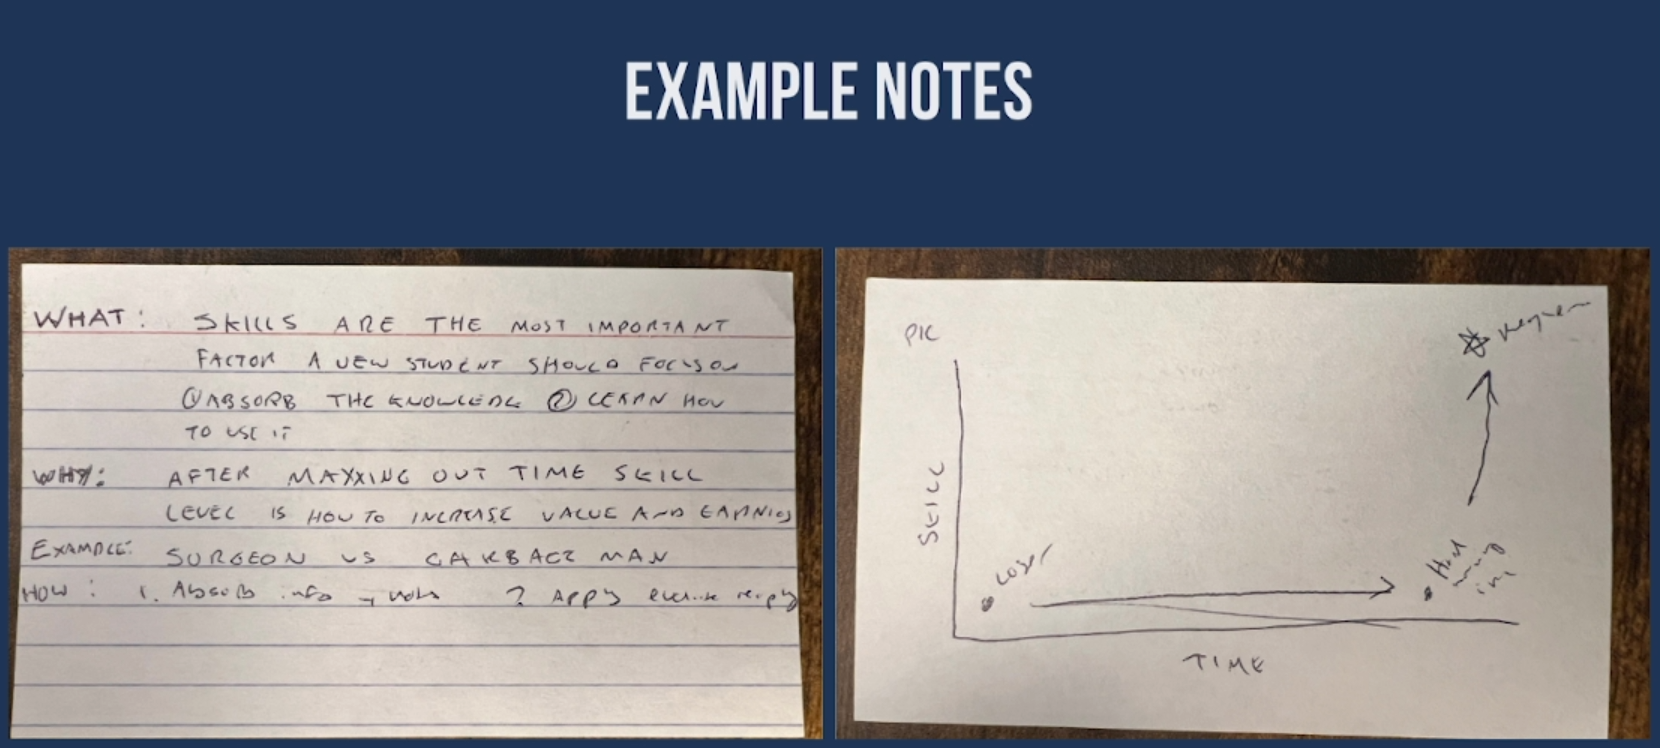 EXAMPLE NOTES
WHAT: SKILLS ARE THE MOST IMPORTANT
FACTOR A NEW STUDENT SHOULD FOCUS ON
① ABSORB THE KNOWLEDGE ② LEARN HOW
TO USE IT
WHY: AFTER MAXXING OUT TIME SKILL
LEVEL IS HOW TO INCREASE VALUE AND EARNINGS
EXAMPLE: SURGEON VS GARBAGE MAN
HOW: 1. Absorb info → notes 2 Apply
PIC
SKILL
Loser
Hard
TIME